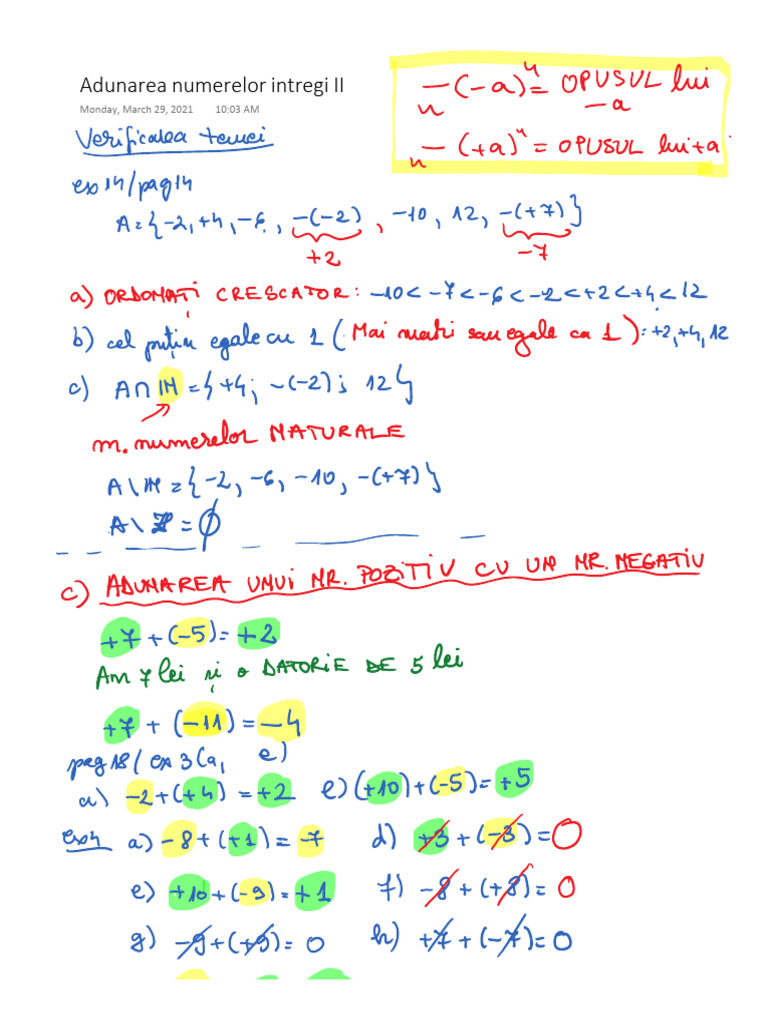 Adunarea numerelor intregi II
Monday, March 29, 2021 10:03 AM
-(-a) = OPUSUL lui
-a
-(+a) = OPUSUL lui +a
Verificarea temei
ex 14/pag 14
A = {-2, +4, -6, -(-2), -10, 12, -(+7)}
+2 -7
a) ORDONAȚI CRESCATOR: -10 < -7 < -6 < -2 < +2 < +4 < 12
b) cel puțin egale cu 1 (Mai mari sau egale ca 1): +2, +4, 12
c) A ∩ IN = { +4; -(-2); 12 }
m. numerelor NATURALE
A \ IN = {-2, -6, -10, -(+7)}
A \ Z = ∅
c) ADUNAREA UNUI NR. POZITIV CU UN NR. NEGATIV
+7 + (-5) = +2
Am 7 lei și o DATORIE DE 5 lei
+7 + (-11) = -4
pag 18 / ex 3 (a, e)
a) -2 + (+4) = +2 e) (+10) + (-5) = +5
ex 4 a) -8 + (+1) = -7 d) +3 + (-3) = 0
e) +10 + (-9) = +1 f) -8 + (+8) = 0
g) -9 + (+9) = 0 h) +7 + (-7) = 0